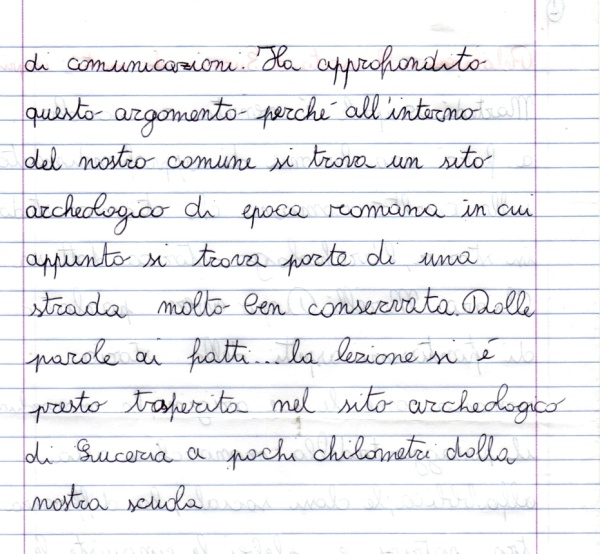 di comunicazioni. Ha approfondito
questo argomento perché all'interno
del nostro comune si trova un sito
archeologico di epoca romana in cui
appunto si trova parte di una
strada molto ben conservata. Dalle
parole ai fatti... la lezione si é
presto trasferita nel sito archeologico
di Luceria a pochi chilometri dalla
nostra scuola